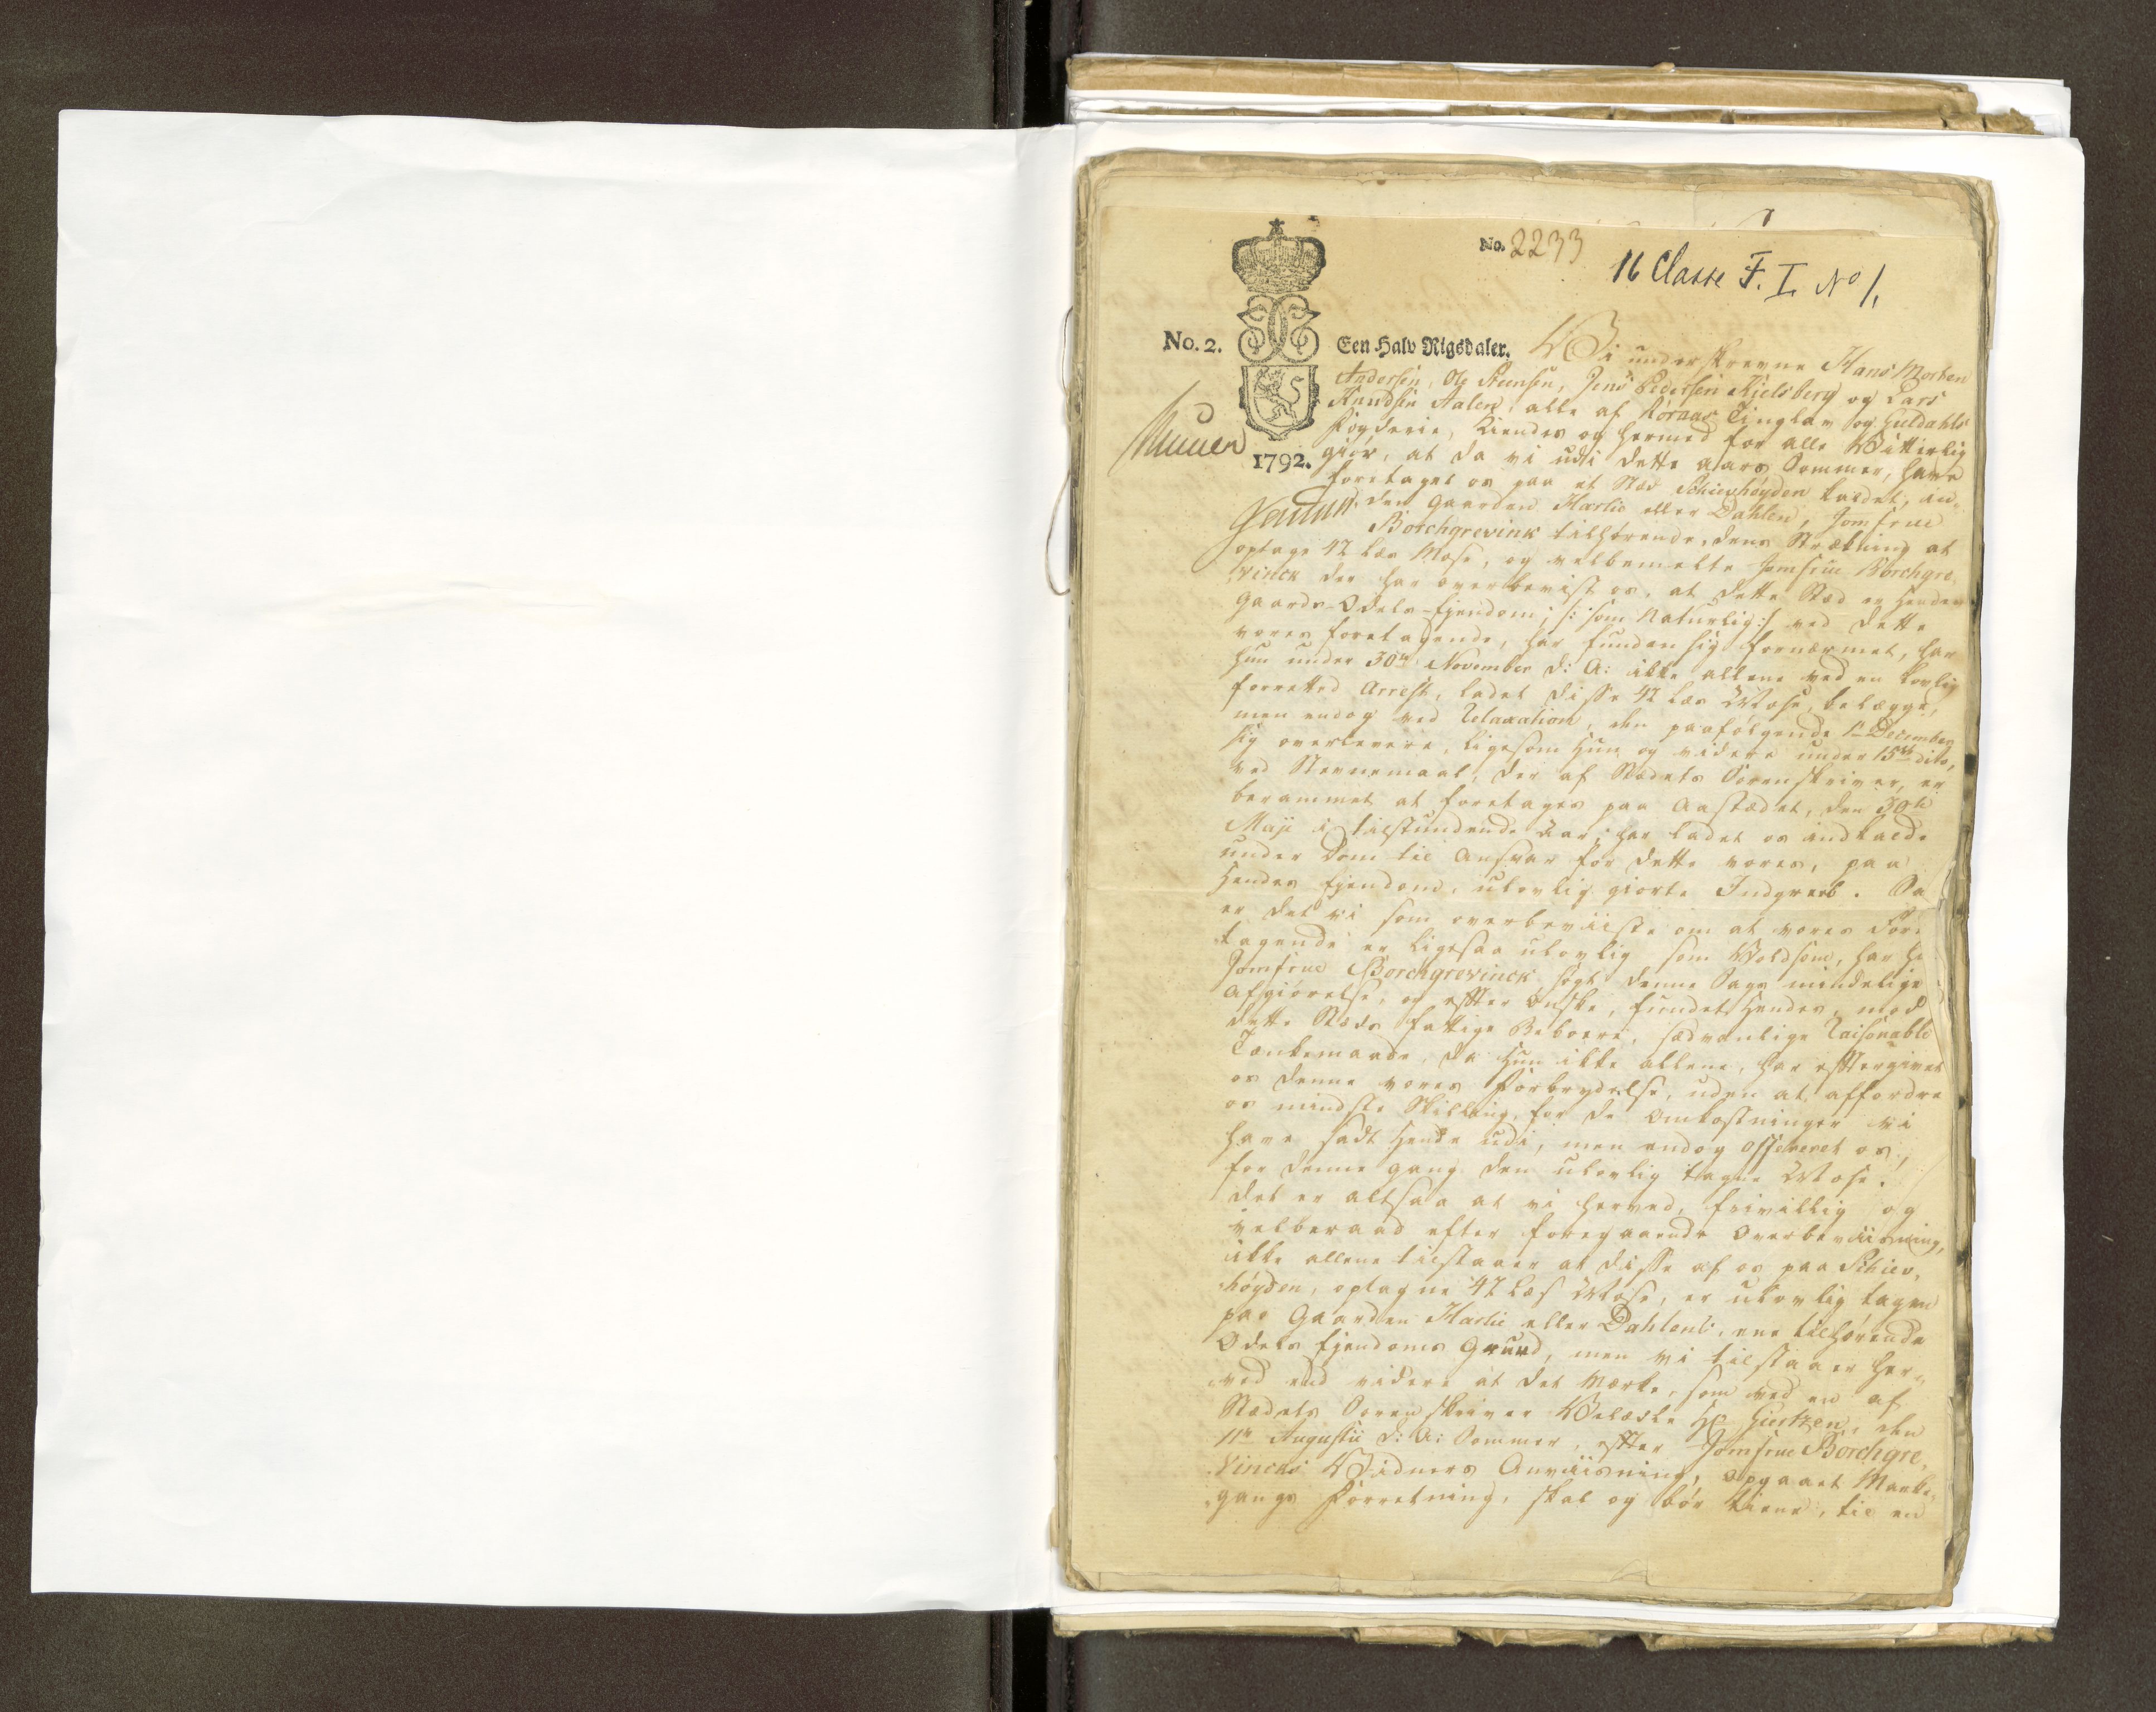 No. 2233
16 Classe F. I. No 1.
No. 2. Een Halv Rigsdaler.
1792.
Vi underskrevne Hans Morten
Andersen, Ole Steensen, Jens Pedersen Kjelsberg og Lars
Knudsen Aalen, alle af Røraas Tinglav og Guldahls
Fogderie, Kiendes og hermed for alle Vitterlig
giør, at da vi udi dette Aars Sommer, have
foretaget os paa et Stæd Schievhøyden kaldet, un-
der Gaarden Harlie eller Dahlen, Jomfrue
Borchgrevink tilhørende, dens Strækning at
optage 42 Læs Mose, og velbemelte Jomfrue Borchgre
vinck der har overbevist os, at dette Stæd er Hendes
Gaards-Odels-Ejendom, /: som Naturlig :/ ved dette
vores foretagende, har funden sig fornærmet, har
hun under 30te November d: A: ikke allene ved en lovlig
forretted Arrest, ladet disse 42 Læs Mose, belægge,
men endog ved Relaxation, den paafølgende 1te December
sig overlevere, ligesom Hun og videre under 15de dito,
ved Stevnemaal, der af Stædets Sorenskriver, er
berammet at foretages paa Aastædet, den 30te
Maji i tilstundende Aar; har ladet os indkalde
under Dom til Ansvar for dette vores, paa
Hendes Ejendom, ulovlig giorte Indgreb. Da
er det vi som overbeviiste om at vores Fore
tagende er ligesaa ulovlig som Voldsom, har hos
Jomfrue Borchgrevinck søgt denne Sags mindelige
Afgiørelse, og effter Ønske, fundet Hendes, mod
dette Stæds fattige Beboere, sædvanlige Raisonable
Tænkemaade, da Hun ikke allene, har efftergivet
os denne vores Forbrydelse, uden at affordre
os mindste Skilling, for de Omkostninger vi
have sadt Hende udi, men endog offereret os,
for denne gang den ulovlig tagne Mose.
Det er altsaa at vi herved, frivillig og
velberaad efter foregaaende Overbeviisning,
ikke allene tilstaaer at disse af os paa Schiev-
høyden, optagne 42 Læs Mose, er ulovlig tagen
paa Gaarden Harlie eller Dahlens, ene tilhørende
Odels Ejendoms Grund, men vi tilstaaer her-
ved end videre at det Mærke, som ved en af
Stædets Sorenskriver Velædle Hr Giertzen, den
11te Augustii d: A: Sommer, effter Jomfrue Borchgre-
vincks Vidners Anviisning, opgaaet Marke-
gangs Forretning, skal og bør tiene, til en